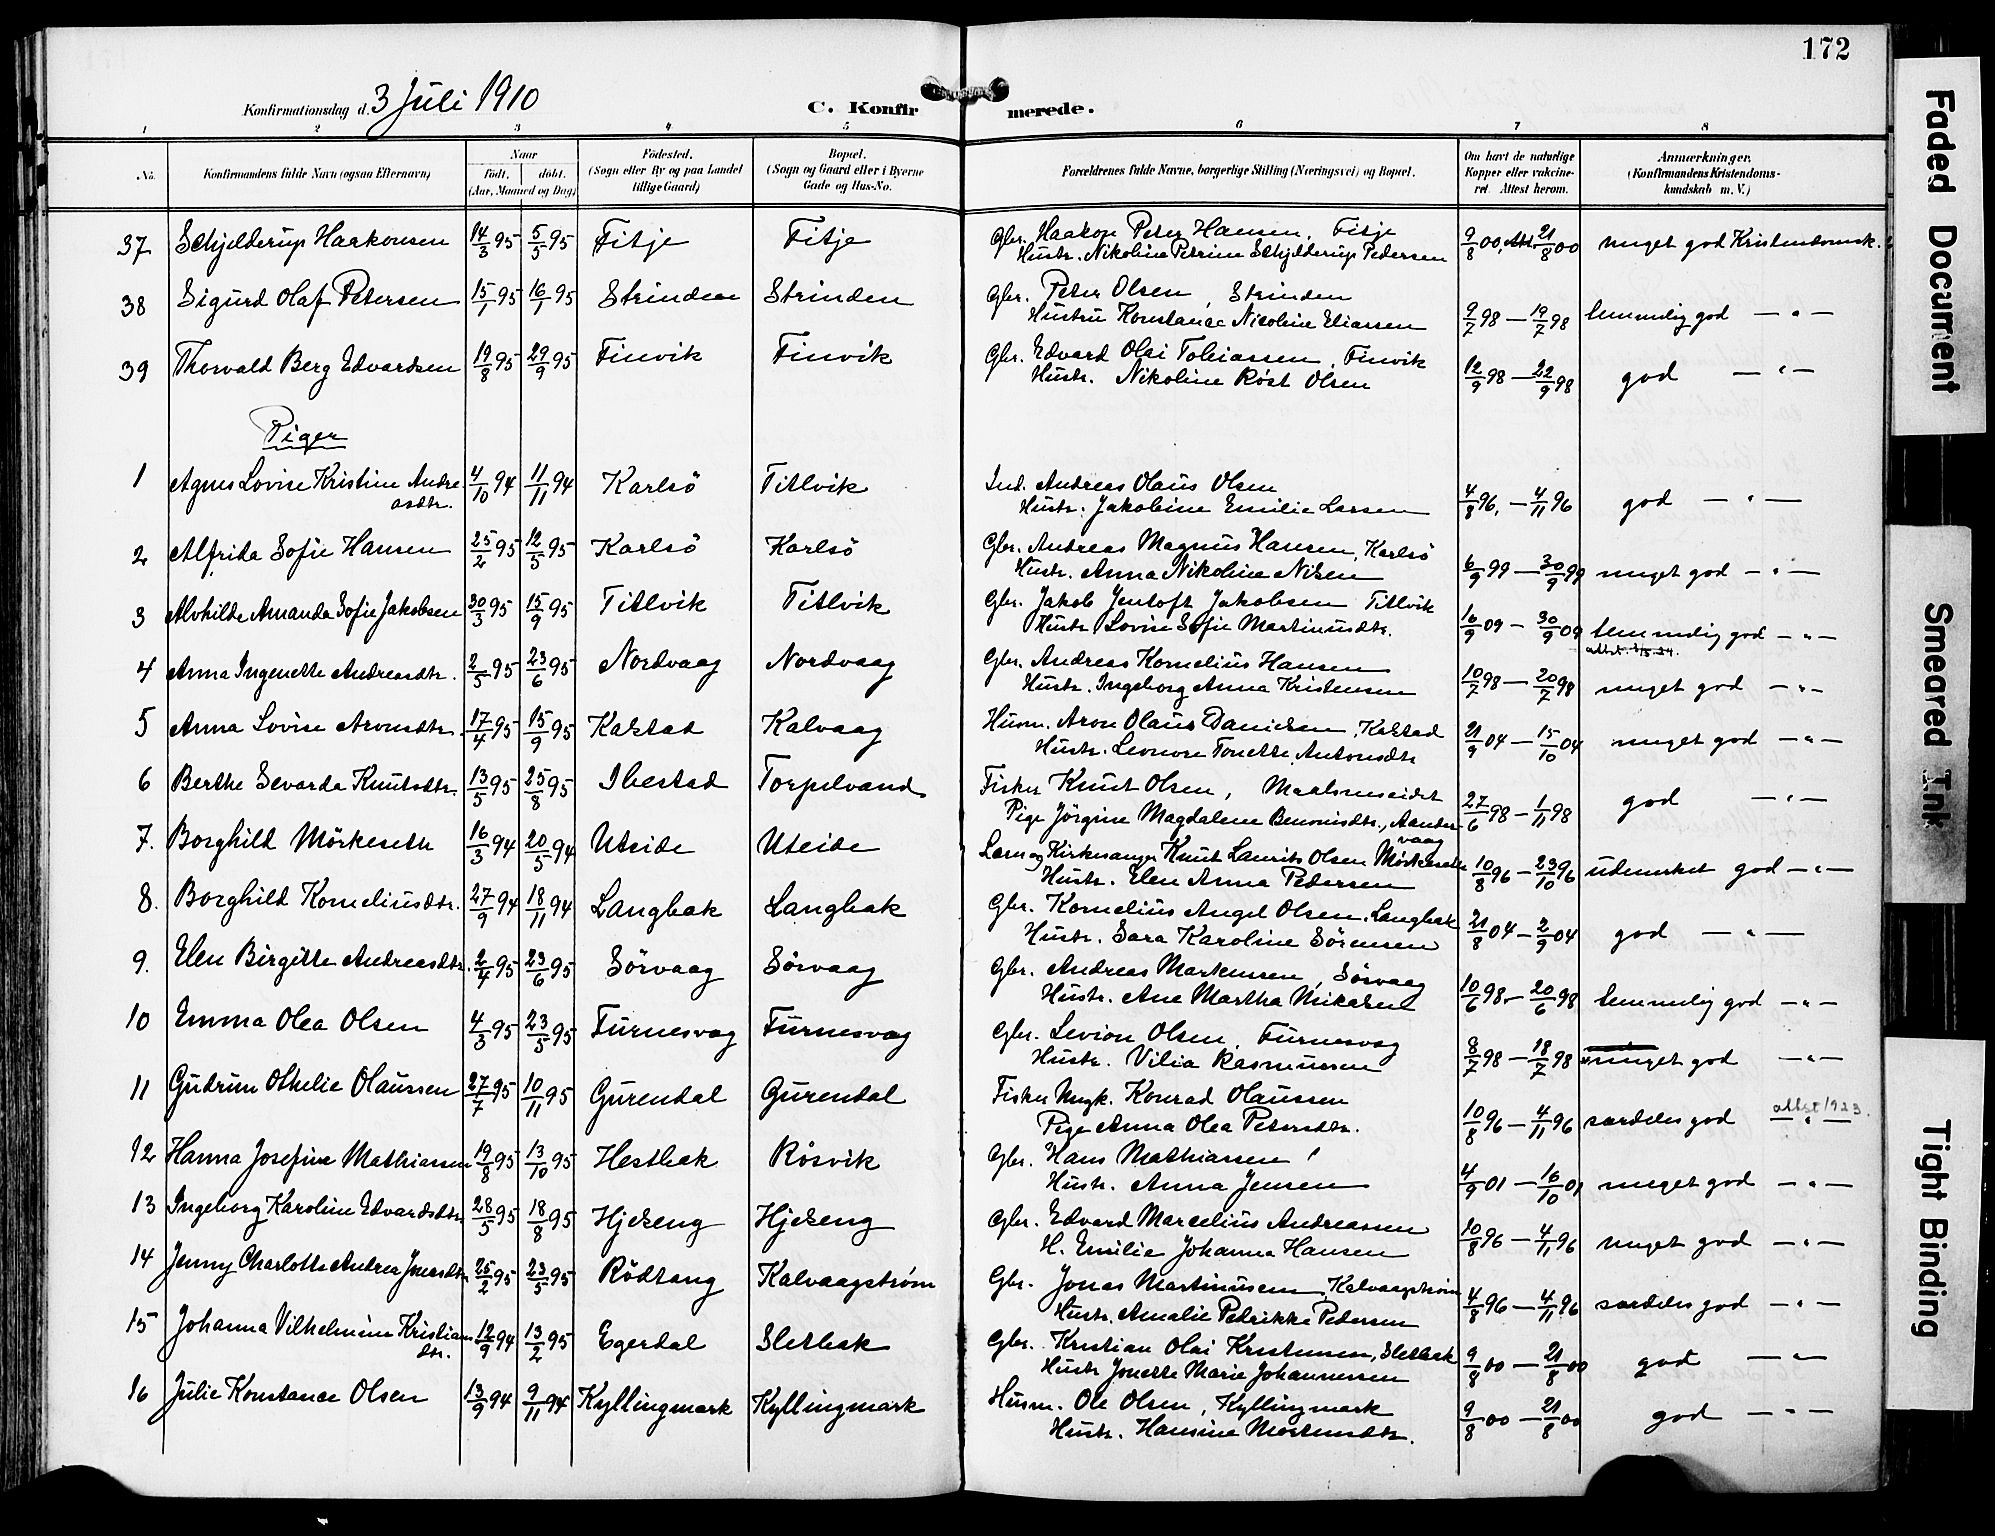 172
Konfirmationsdag d. 3 Juli 1910
C. Konfirmerede.
1 2 3 4 5 6 7 8
No.
Konfirmandens fulde Navn (ogsaa Efternavn)
Naar
født. døbt.
(Aar, Maaned og Dag)
Fødested.
(Sogn eller By og paa Landet
tillige Gaard)
Bopæl.
(Sogn og Gaard eller i Byerne
Gade og Hus-No.
Forældrenes fulde Navne, borgerlige Stilling (Næringsvei) og Bopæl.
Om havt de naturlige
Kopper eller vakcine-
ret. Attest herom.
Anmærkninger.
(Konfirmandens Kristendoms-
kundskab m. V.)
37 Schjelderup Haakonsen 14/3 95 5/5 95 Fitje Fitje Gbr. Haakon Peter Hansen, Fitje
Hustr. Nikoline Petrine Schjelderup Pedersen 9/8 00, Att. 21/8 00 meget god Kristendomsk.
38 Sigurd Olaf Petersen 15/1 95 16/1 95 Strinden Strinden Gbr. Peter Olsen, Strinden
Hustru Konstance Nicoline Eliassen 9/7 98 — 19/7 98 temmelig god — " —
39 Thorvald Berg Edvardsen 19/8 95 29/9 95 Finvik Finvik Gbr. Edvard Olai Tobiassen, Finvik
Hustr. Nikoline Røst Olsen 12/9 98 — 22/9 98 god — " —
Piger
1 Agnes Lovise Kristine Andre-
asdtr. 4/10 94 11/11 94 Karlsö Titlvik Ind. Andreas Olaus Olsen
Hustr. Jakobine Emilie Larsen 4/8 96, — 4/11 96 god — " —
2 Alfrida Sofie Hansen 25/2 95 12/5 95 Karlsö Karlsö Gbr. Andreas Magnus Hansen, Karlsö
Hustr. Anna Nikoline Nilsen 6/9 99 — 30/9 99 meget god — " —
3 Alvhilde Amanda Sofie Jakobsen 30/3 95 15/9 95 Titlvik Titlvik Gbr. Jakob Jentoft Jakobsen Titlvik
Hustr. Lovise Sofie Martinusdtr. 16/9 09 — 30/9 09 temmelig god — " —
4 Anna Ingenette Andreasdtr. 2/5 95 23/6 95 Nordvaag Nordvaag Gbr. Andreas Kornelius Hansen
Hustr. Ingeborg Anna Kristensen 10/7 98 — 20/7 98 meget god — " —
5 Anna Lovise Aronsdtr. 17/4 95 15/9 95 Kalstad Kalvaag Husm. Aron Olaus Danielsen, Kalstad
Hustr. Leonore Tonette Antonsdtr 21/9 04 — 15/10 04 meget god — " —
6 Berthe Sevarda Knutsdtr. 13/5 95 25/8 95 Ibestad Torpelvand Fisker Knut Olsen, Maalsneseidet
Pige Jörgine Magdalene Benonisdtr., Aander-
vaag 27/6 98 — 1/11 98 god — " —
7. Borghild Mörkeseth 16/3 94 20/5 94 Uteide Uteide Lærer og Kirkesanger Knut Laurits Olsen Mörkeseth
Hustr. Elen Anna Pedersen 10/8 96 — 23/10 96 udmerket god — " —
8. Borghild Korneliusdtr. 27/9 94 18/11 94 Langbak Langbak Gbr. Kornelius Angel Olsen, Langbak
Hustr. Sara Karoline Sörensen 21/8 04 — 2/9 04 god — " —
9. Elen Birgitte Andreasdtr. 2/4 95 23/6 95 Sörvaag Sörvaag Gbr. Andreas Markussen, Sörvaag
Hustr. Ane Martha Mikalsen 10/6 98 — 20/6 98 temmelig god — " —
10 Emma Olea Olsen 4/3 95 23/5 95 Furnesvag Furnesvag Gbr. Levion Olsen, Furnesvag
Hustr. Vilia Rasmussen 8/7 98 — 18/7 98 meget god — " —
11 Gudrun Othelie Olaussen 27/7 95 10/11 95 Gurendal Gurendal Fisker Ungk. Konrad Olaussen
Pige Anna Olea Petersdtr. 10/8 96 — 4/11 96 særdeles god — " — attst 1923.
12 Hanna Josefine Mathiassen 19/8 95 13/10 95 Hestbak Rösvik Gbr. Hans Mathiassen
Hustr. Anna Jensen 4/9 01 — 16/10 01 meget god — " —
13 Ingeborg Karoline Edvardsdtr 28/5 95 18/8 95 Hjelseng Hjelseng Gbr. Edvard Marcelius Andreassen
H. Emilie Johanna Hansen 10/8 96 — 4/11 96 meget god — " —
14 Jenny Charlotte Andrea Jonasdtr 25/2 95 23/5 95 Rödtang Kalvaagstrøm Gbr. Jonas Martinussen, Kalvaagstrøm
Hustr. Amalie Petrikke Pedersen 4/8 96 — 4/11 96 særdeles god — " —
15 Johanna Vilhelmine Kristians-
dtr. 12/9 94 13/2 95 Egerdal Sletbak Gbr. Kristian Olai Kristensen, Sletbak
Hustr Jonette Marie Johannessen 9/8 00 — 21/8 00 god — " —
16 Julie Konstance Olsen 13/9 94 9/11 94 Kyllingmark Kyllingmark Husm. Ole Olsen, Kyllingmark
Hustr. Hansine Mortensdtr. 9/8 00 — 21/8 00 god — " —
Faded Document
Smeared Ink
Tight Binding